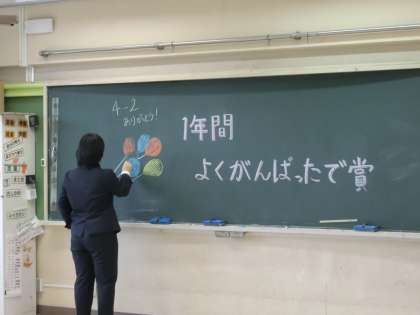 4-2
ありがとう!
1年間
よくがんばったで賞